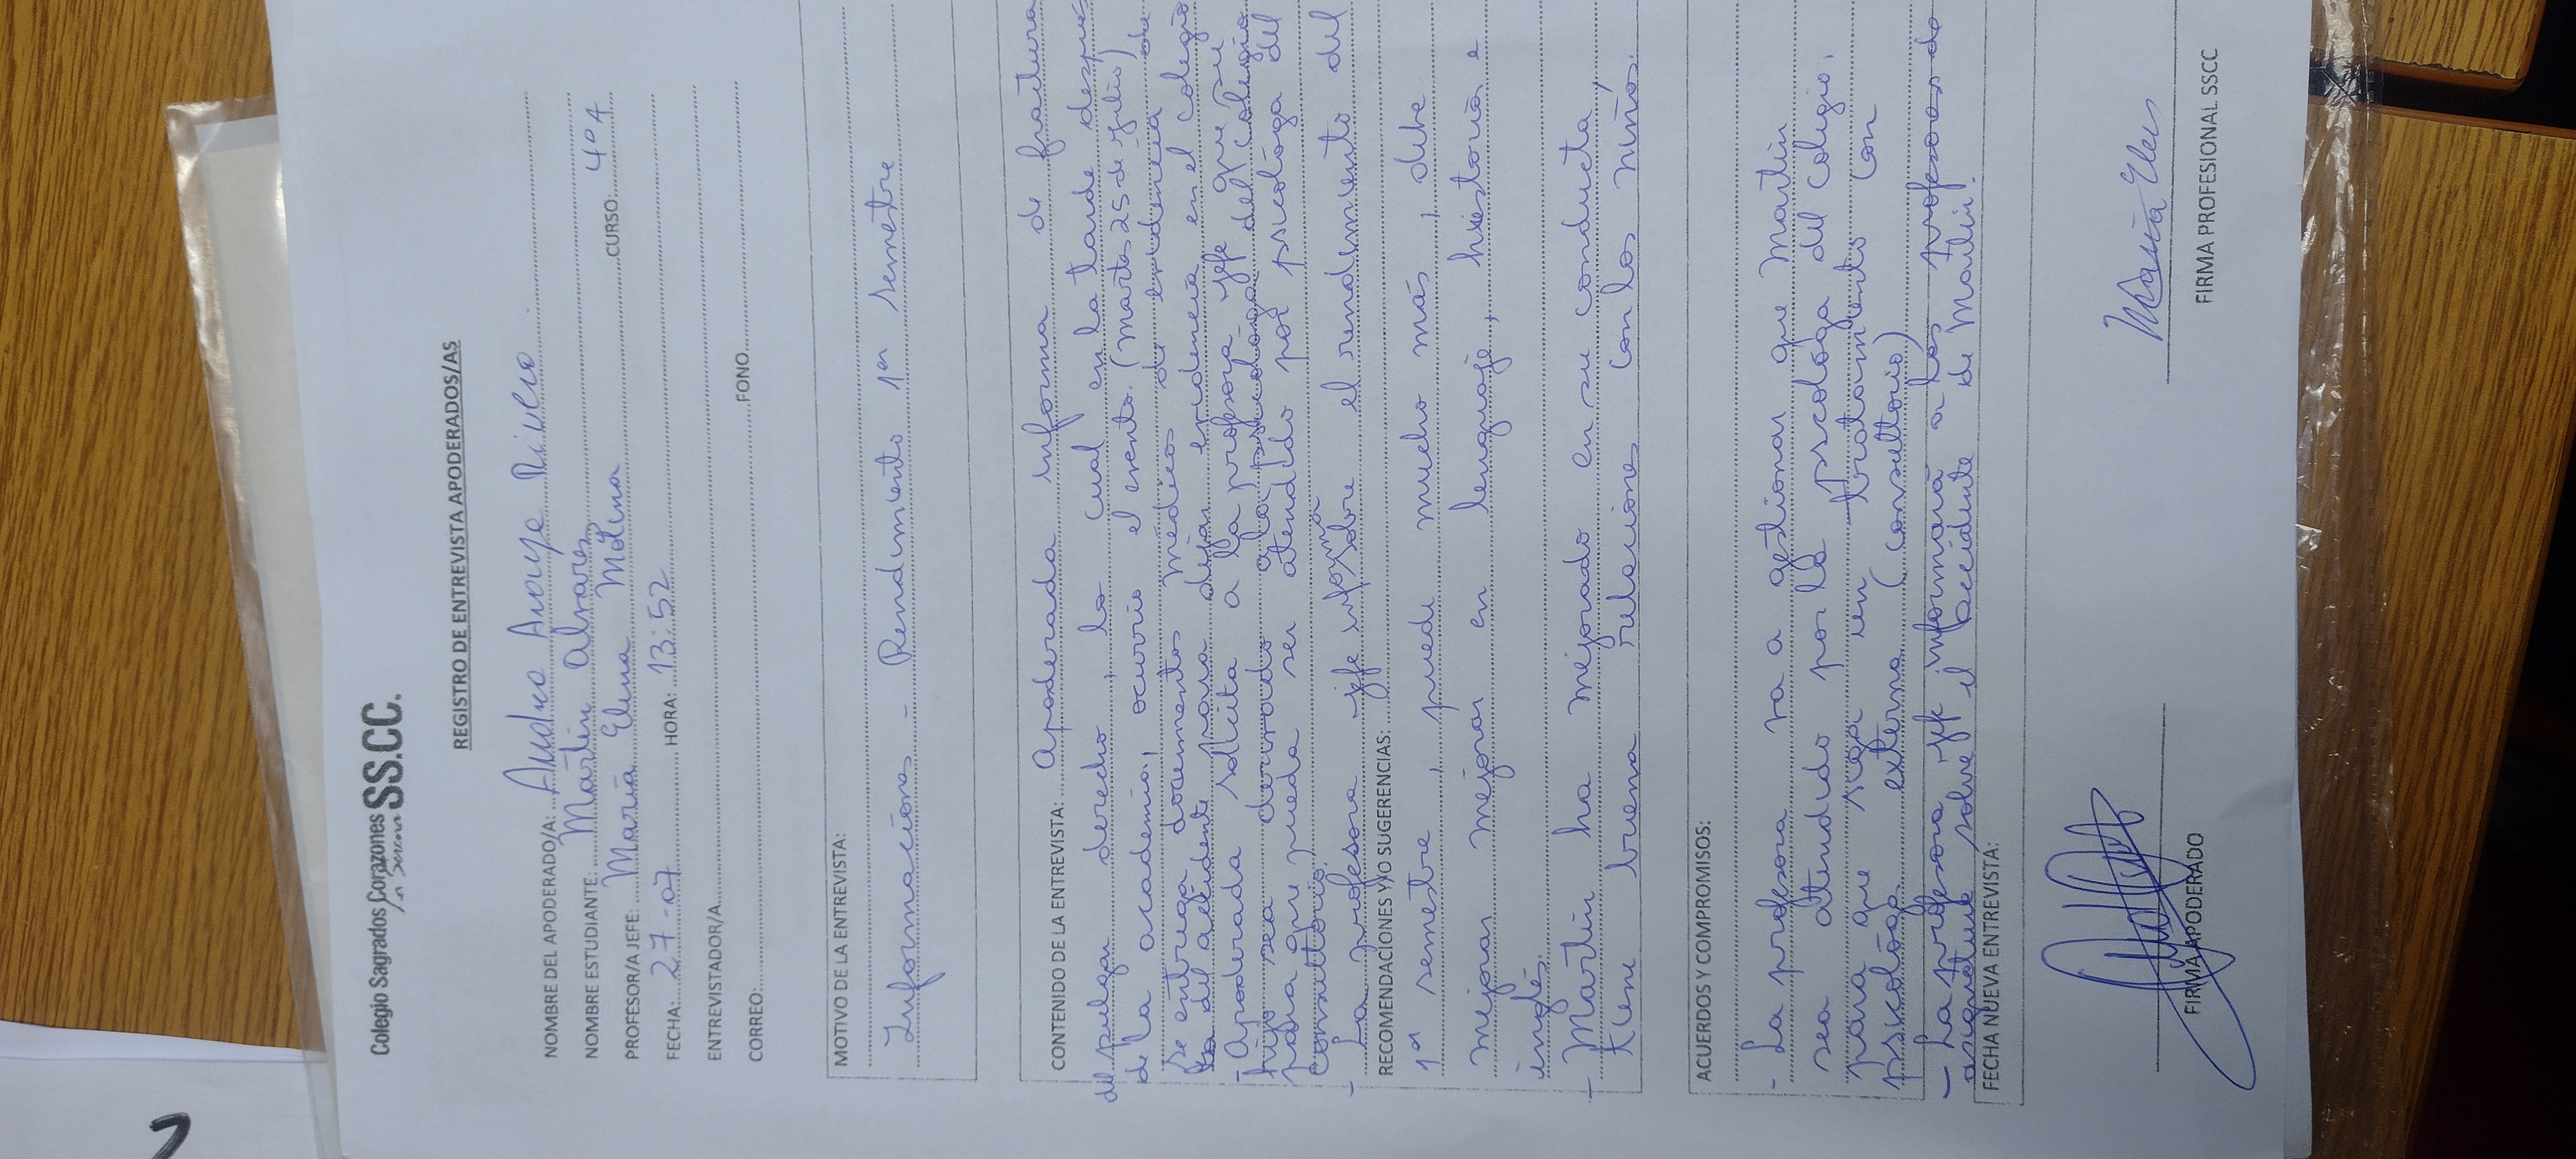 Colegio Sagrados Corazones SS.CC.
La Serena
REGISTRO DE ENTREVISTA APODERADOS/AS
NOMBRE DEL APODERADO/A: Andrea Araya
NOMBRE ESTUDIANTE: Martín Alvarez
PROFESOR/A JEFE: María Elena Molina CURSO: 4°A
FECHA: 27-07 HORA: 13:52
ENTREVISTADOR/A
CORREO: FONO
MOTIVO DE LA ENTREVISTA:
Informaciones - Rendimiento 1er semetre
CONTENIDO DE LA ENTREVISTA: Apoderada informa de fractura
del pulgar derecho, lo cual en la tarde después
de la academia, ocurrio el evento. (martes 25 de julio)
Se entrega documentos médicos de evidencia de
del accidente para dejar evidencia en el colegio
- Apoderada solicita a la profesora jefe que su
hijo sea derivado a la psicóloga del colegio
para que pueda ser atendido por psicóloga del
consultorio.
- La profesora jefe informa sobre el rendimiento del
RECOMENDACIONES Y/O SUGERENCIAS:
1er semestre, puede mucho más, debe
mejorar mejorar en lenguaje, historia e
inglés.
- Martín ha mejorado en su conducta,
tiene buena relaciones con los niños.
ACUERDOS Y COMPROMISOS:
- La profesora va a gestionar que Martín
sea atendido por la psicóloga del colegio,
para que siga un tratamiento con
psicóloga externa (consultorio)
- La profesora jefe informará a los profesores de
asignatura sobre el accidente de Martín.
FECHA NUEVA ENTREVISTA:
FIRMA APODERADO
María Elena
FIRMA PROFESIONAL SSCC
2